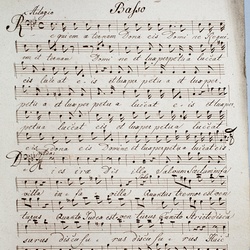 Basso
Adagio
Requiem aeternam Dona eis Domine Requi
em aeternam Domine et lux perpetua luceat
eis luceat eis et lux perpetua et lux per
petua et lux perpetua luceat eis et lux per
petua luceat eis et lux perpetua luceat
eis Dona eis Domine et lux perpetua luceat eis
Dies irae Dies illa solvet saeclum in fa
villa in fa villa Quantus tremor est ven
turus Quando Judex est venturus cuncta stricte discus
surus discussurus discussurus